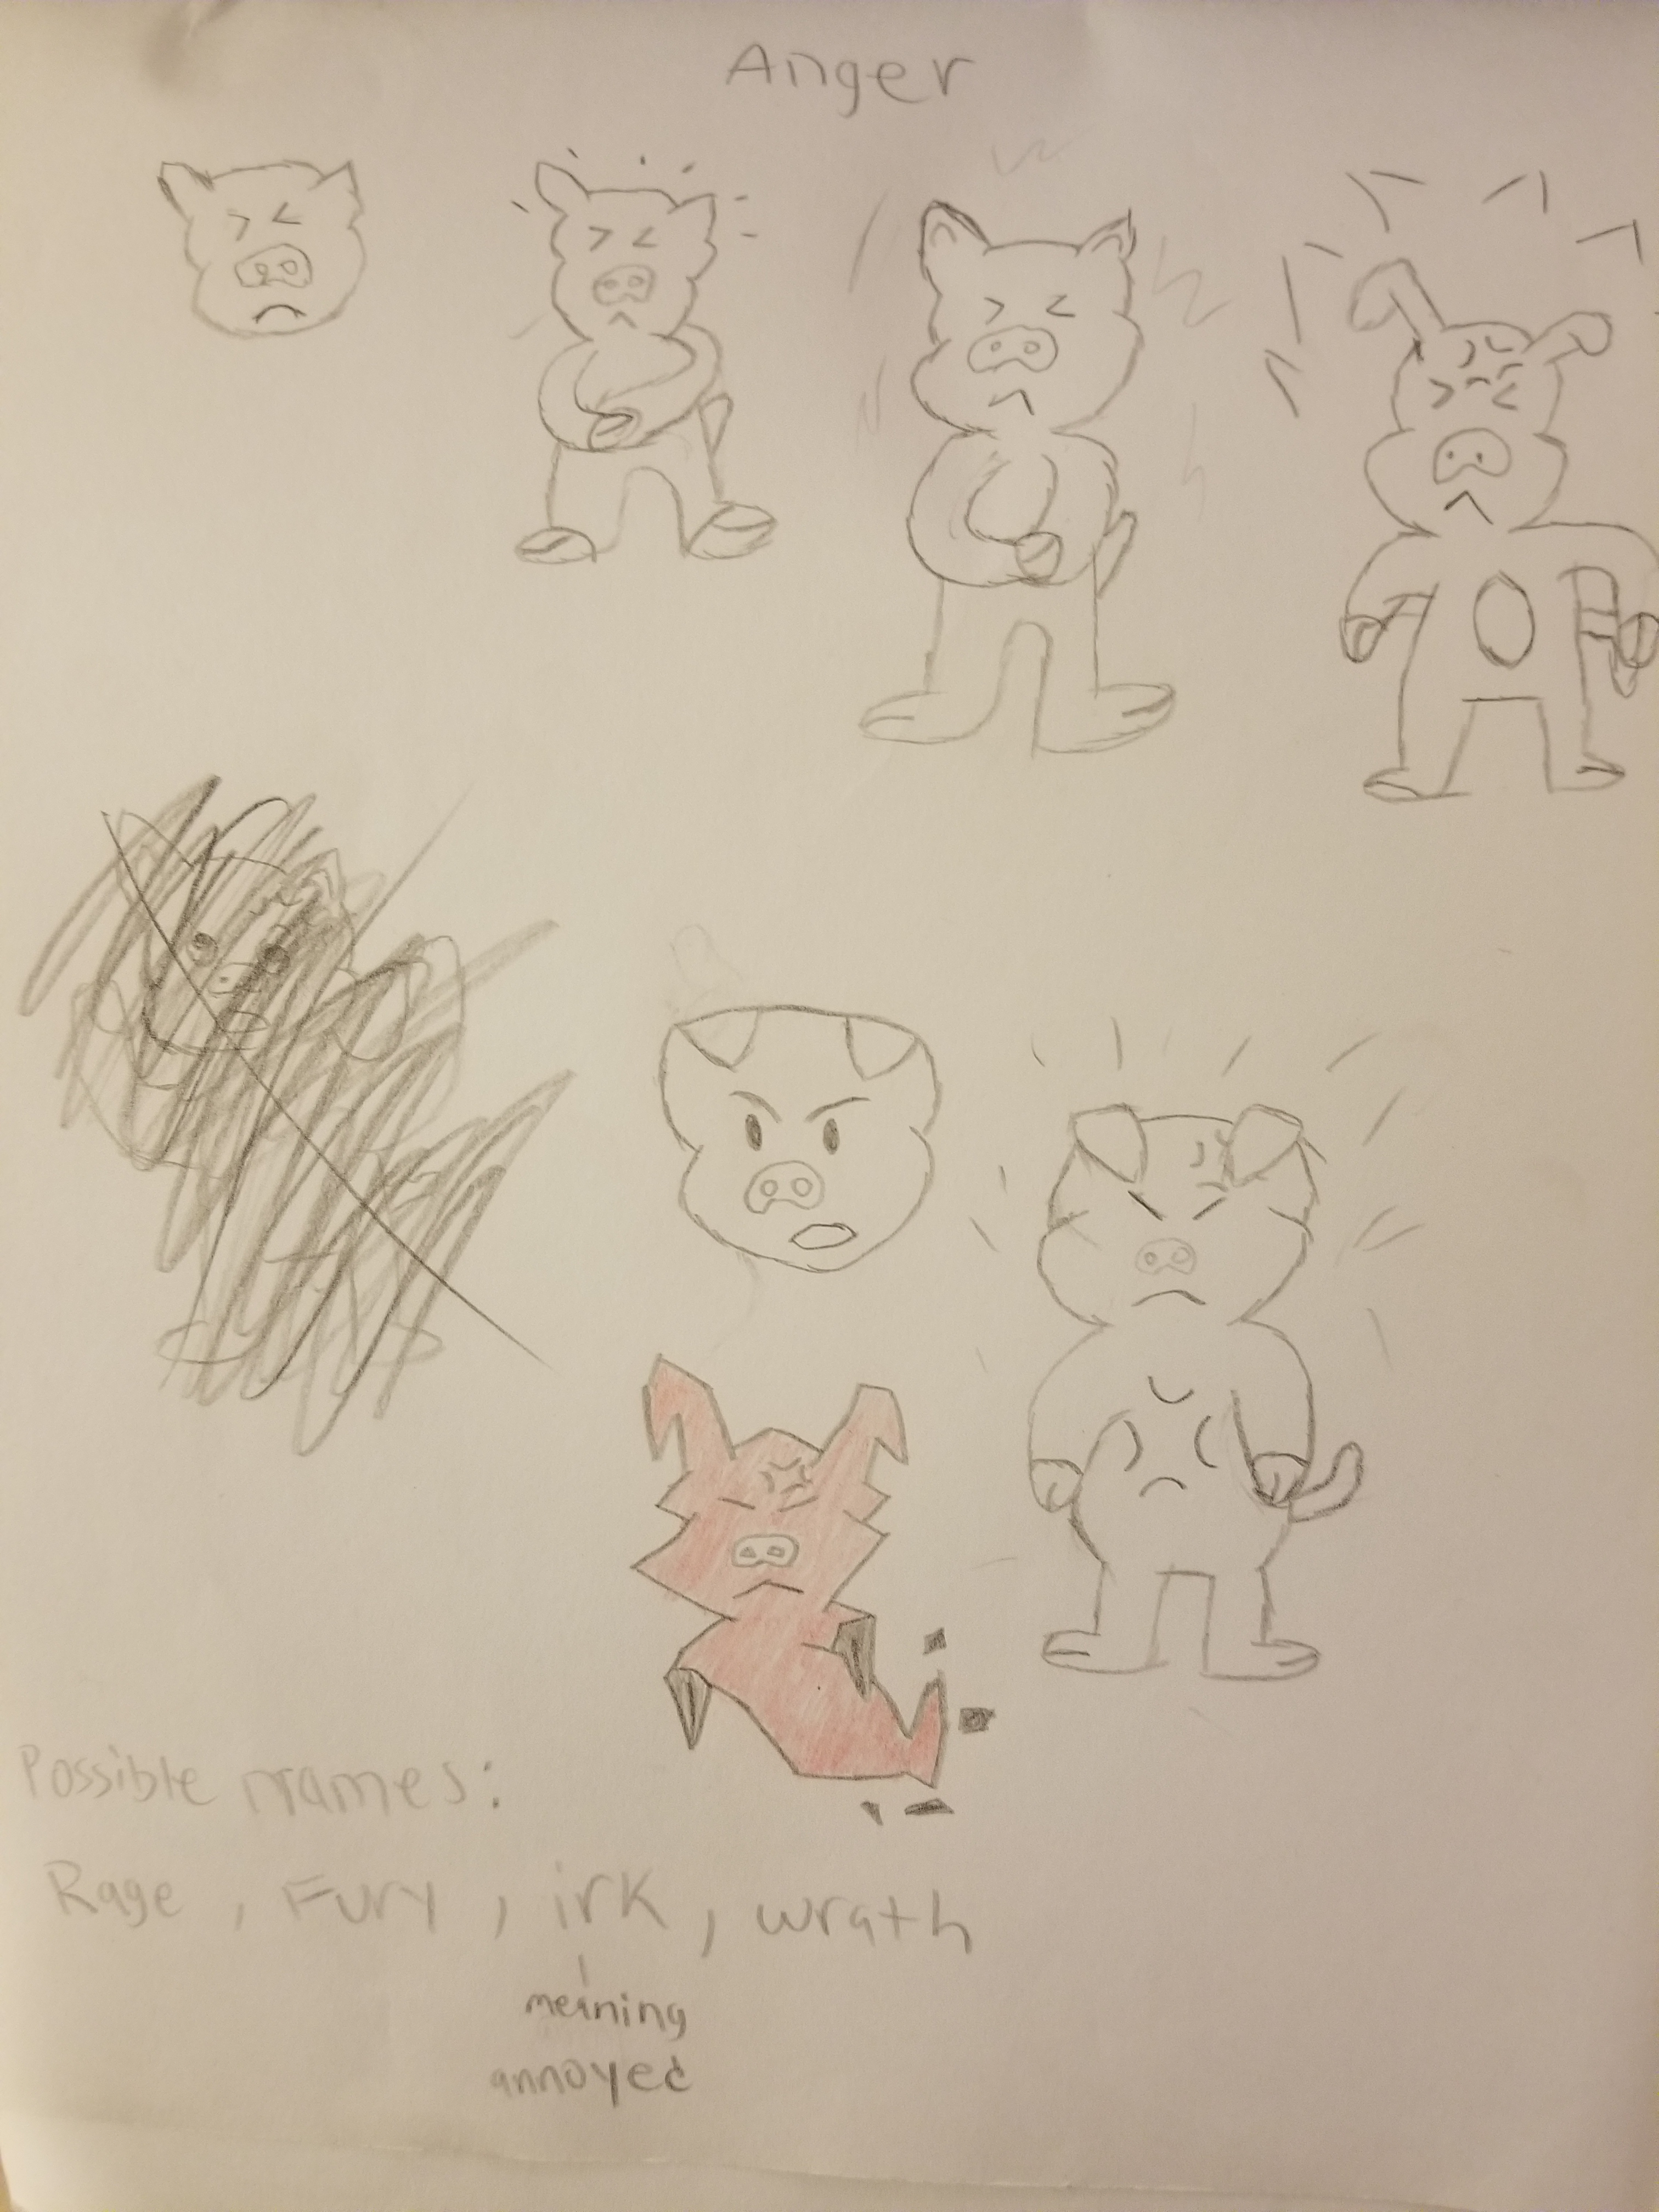 Anger
Possible names:
Rage, Fury, irk, wrath
meaning
annoyed